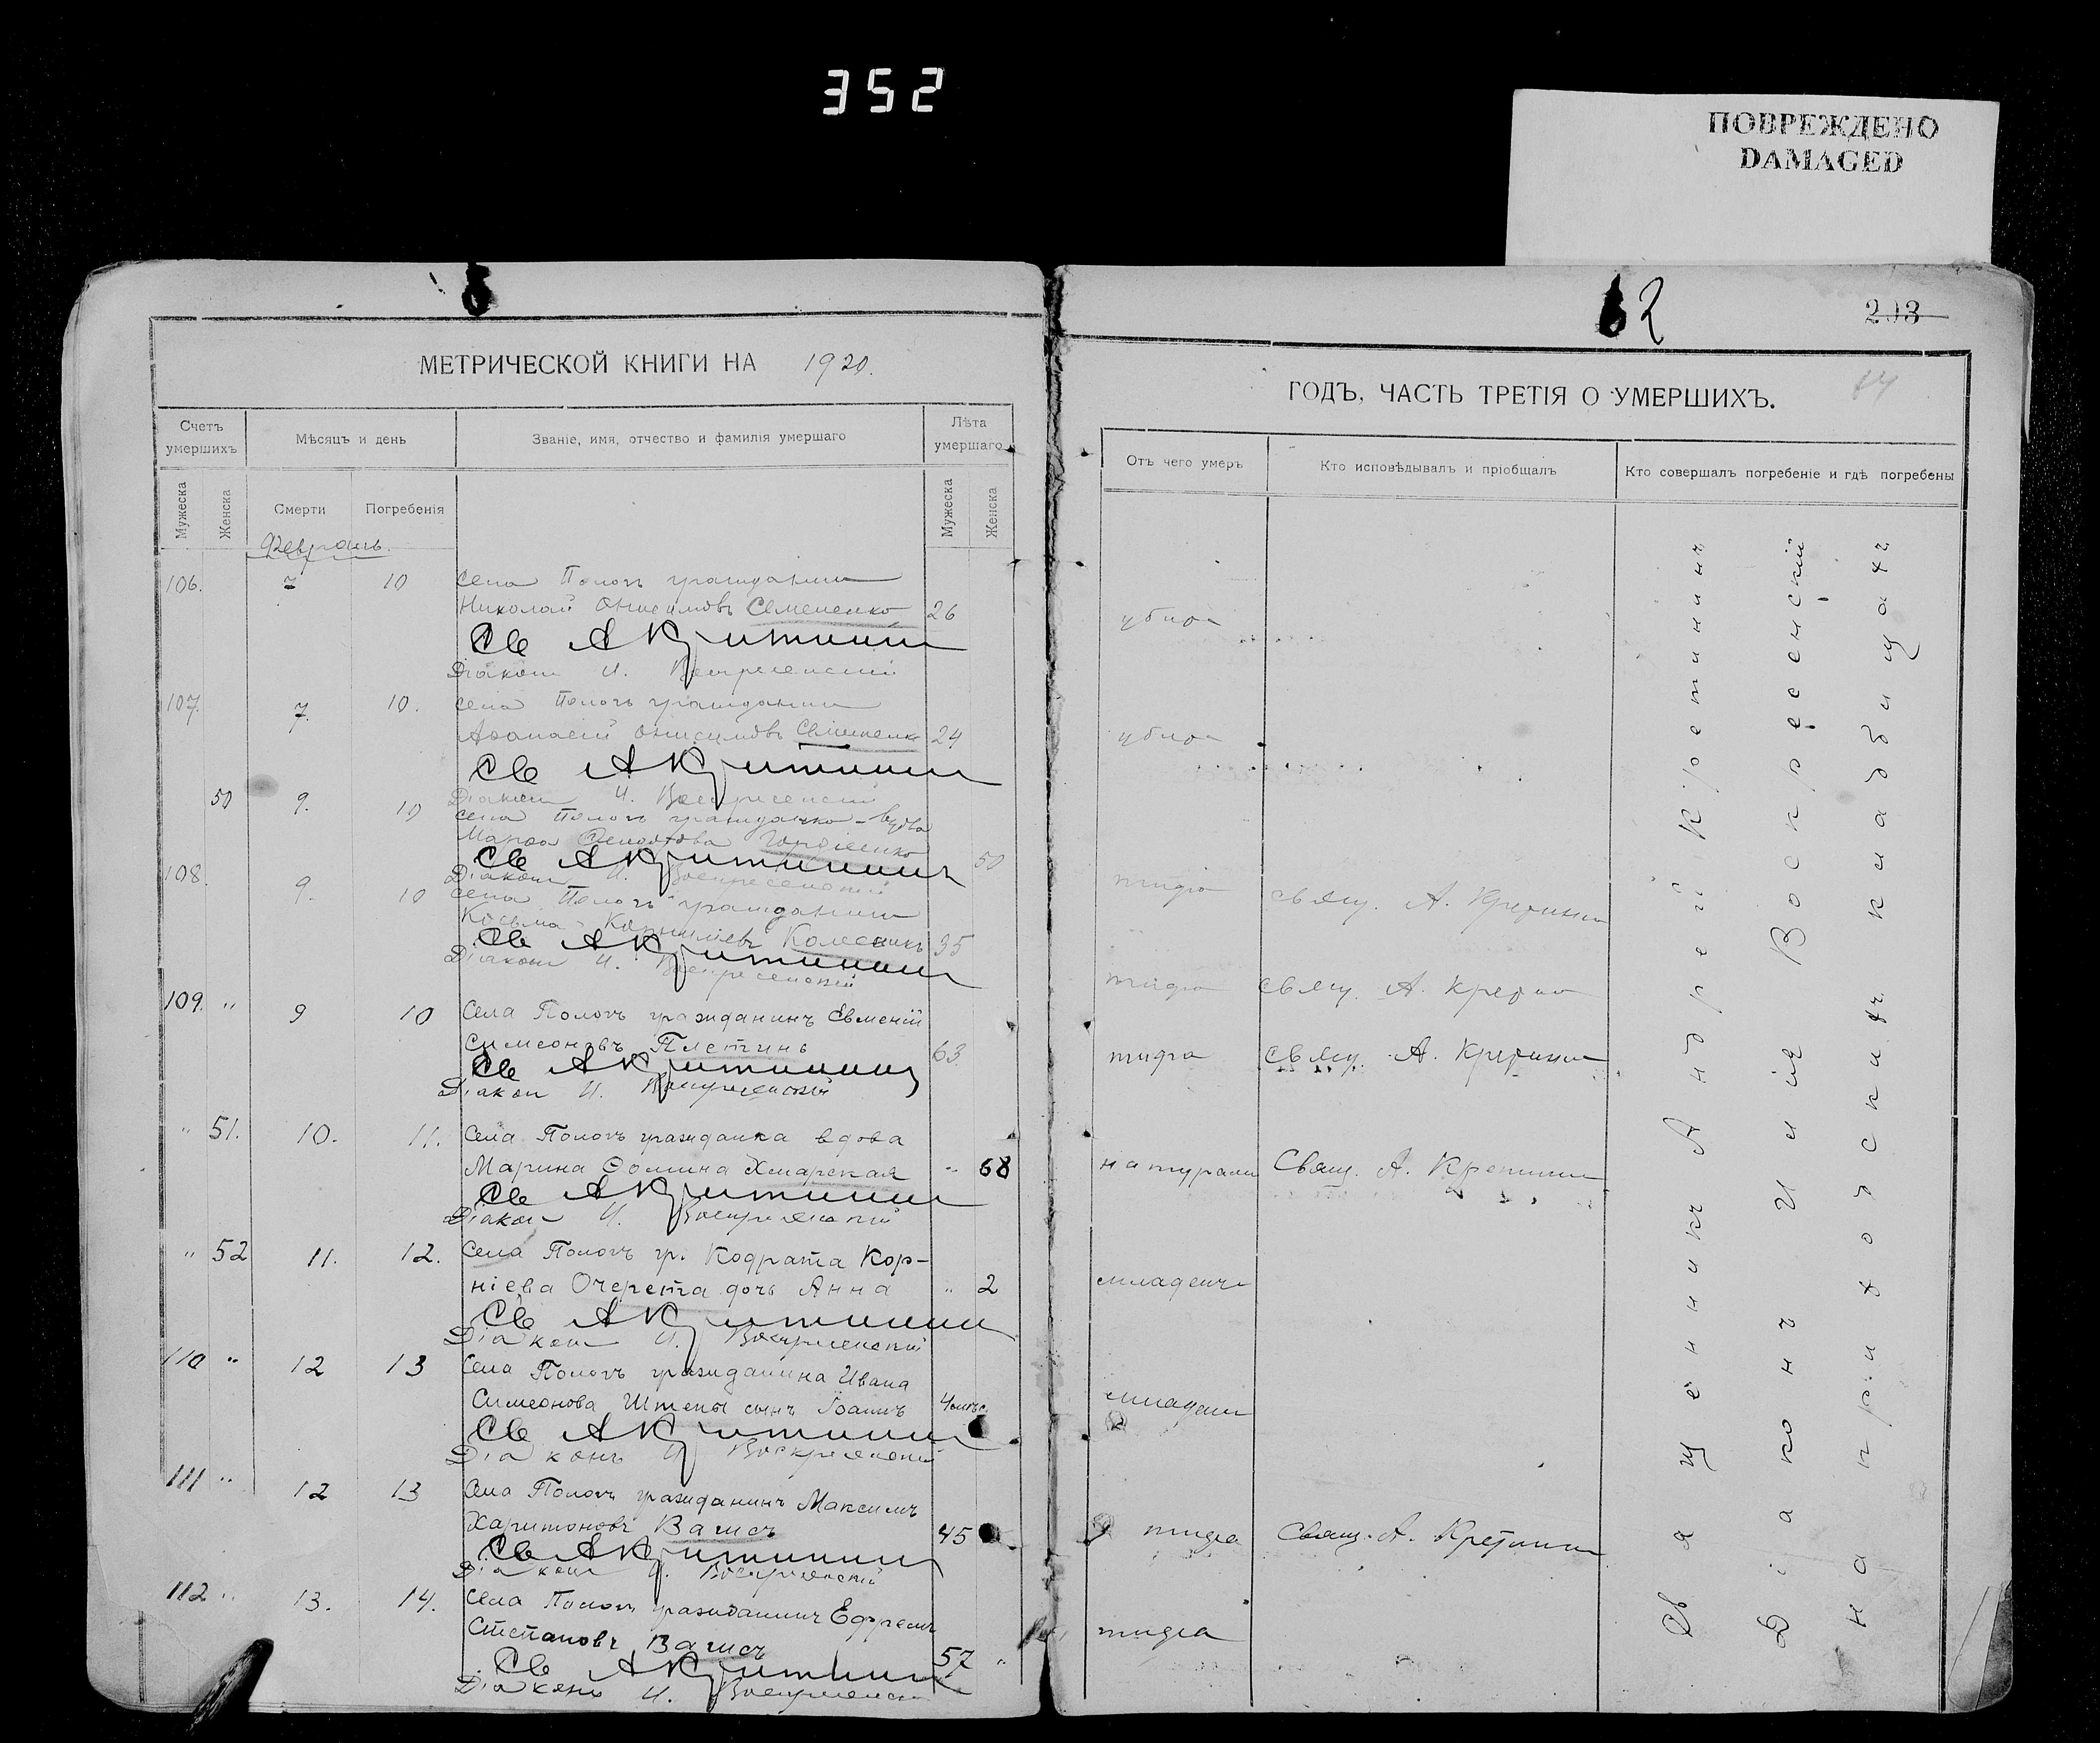 352
ПОВРЕЖДЕНО
DAMAGED
62
203
МЕТРИЧЕСКОЙ КНИГИ НА 1920.
ГОДЪ, ЧАСТЬ ТРЕТІЯ О УМЕРШИХЪ.
Счетъ умершихъ
Мѣсяцъ и день
Званіе, имя, отчество и фамилія умершаго
Лѣта умершаго
Мужеска
Женска
Смерти
Погребенія
Мужеска
Женска
Отъ чего умеръ
Кто исповѣдывалъ и пріобщалъ
Кто совершалъ погребеніе и гдѣ погребены
Февраль
106. 7 10 села Пологъ гражданинъ
Николай Онисимовъ Семененко 26 убитъ
Св А Кретинин
Діаконъ И. Воскресенскій
107. 7. 10. села Пологъ гражданинъ
Афанасій Онисимовъ Семененко 24 убитъ
Св А Кретинин
Діаконъ И. Воскресенскій
50 9. 10 села Пологъ гражданка-вдова
Марфа Гордіенко 50 тифа свящ. А. Кретинин
Св А Кретинин
Діаконъ И. Воскресенскій
108. 9. 10 села Пологъ гражданинъ
Косьма Корниліевъ Колесникъ 35 тифа свящ. А. Кретин
Св А Кретинин
Діаконъ И. Воскресенскій
109. " 9 10 Села Пологъ гражданинъ Евменій
Симеоновъ Плетинь 63 тифа свящ. А. Кретинин
Св А Кретинин
Діакон И. Воскресенскій
" 51. 10. 11. Села Пологъ гражданка вдова
Марина Фомина Хмарская " 68 натурали Свящ. А. Кретинин
Св А Кретинин
Діакон И. Воскресенскій
" 52 11. 12. Села Пологъ гр. Кодрата Кор-
ніева Очерета дочь Анна " 2 младенч
Св А Кретинин
Діакон И. Воскресенскій
110 " 12 13 Села Пологъ гражданина Ивана
Симеонова Штепы сынъ Іоаннъ 4 мѣс. младенч
Св А Кретинин
Діаконъ И. Воскресенскій
111 " 12 13 Села Пологъ гражданинъ Максимъ
Харитоновъ Вагисъ 45 тифа Свящ. А. Кретинин
Св А Кретинин
Діакон И. Воскресенскій
112 " 13. 14. Села Пологъ гражданинъ Ефремъ
Степановъ Вагисъ 57 " тифа
Св А Кретинин
Діаконъ И. Воскресенск
Священникъ Андрей Кретининъ
Діаконъ Илія Воскресенскій
на приходскихъ кладбищахъ